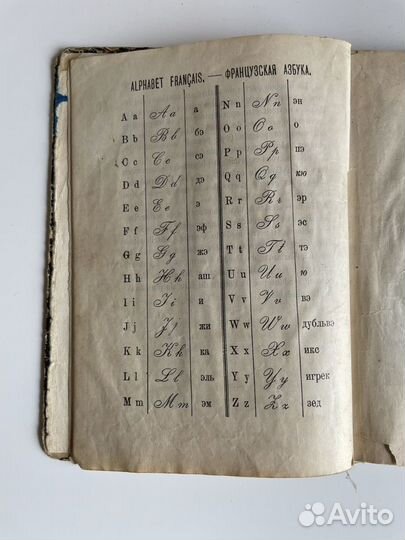 ALPHABET FRANÇAIS. — ФРАНЦУЗСКАЯ АЗБУКА.
A a A a а N n N n эн
B b B b бэ O o O o о
C c C c сэ P p P p пэ
D d D d дэ Q q Q q кю
E e E e э R r R r эр
F f F f эф S s S s эс
G g G g жэ T t T t тэ
H h H h аш U u U u ю
I i I i и V v V v вэ
J j J j жи W w W w дубльвэ
K k K k ка X x X x икс
L l L l эль Y y Y y игрек
M m M m эм Z z Z z зед
Avito